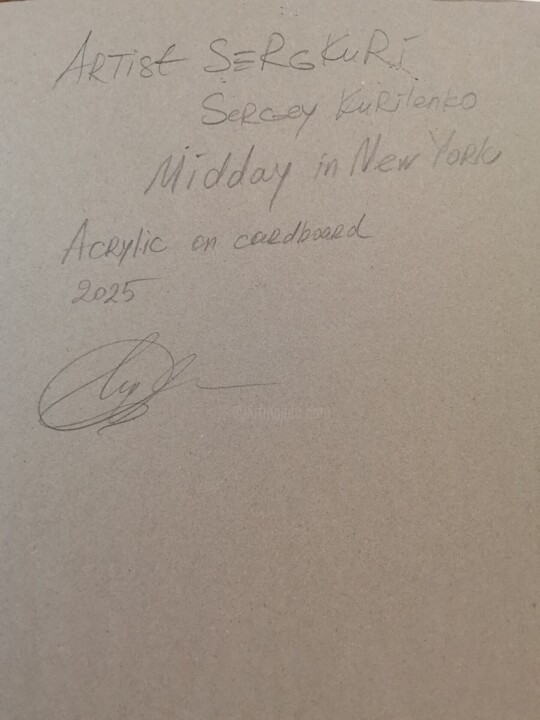 Artist SERGKURI
Sergey Kurilenko
Midday in New York
Acrylic on cardboard
2025